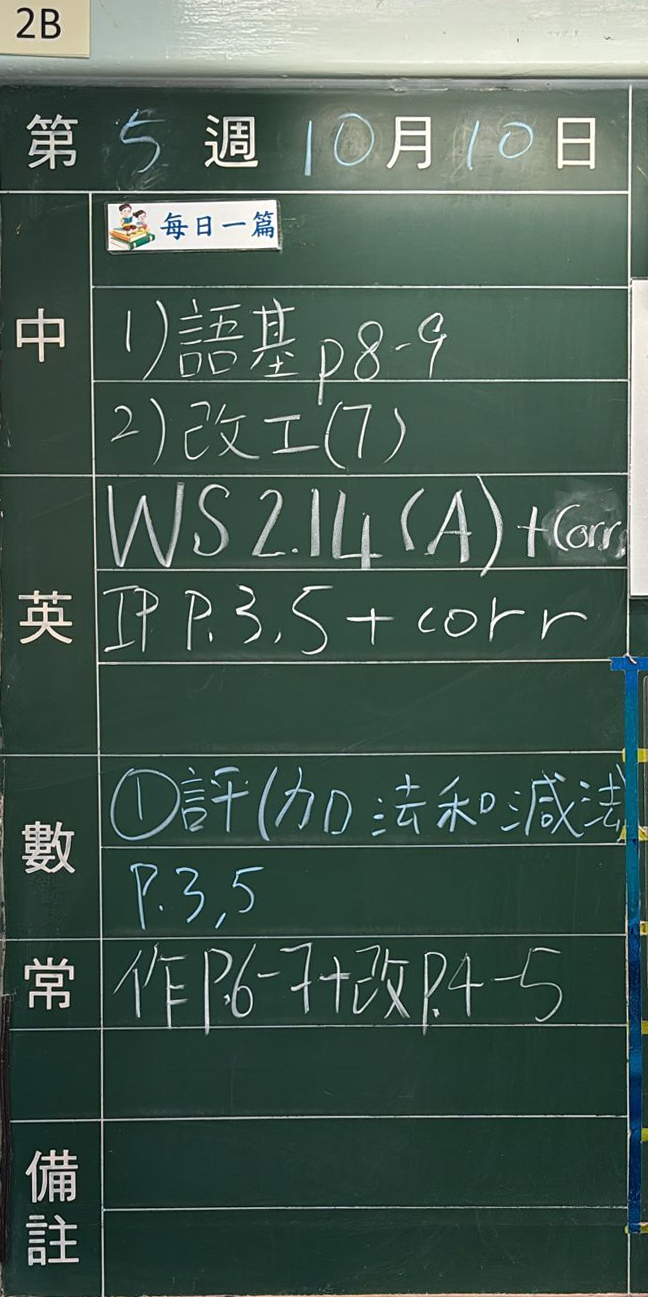 2B
第5週10月10日
中
每日一篇
1)語基p8-9
2)改工(7)
英
WS 2.14(A)+Corr
IP P.3,5+corr
數
①評(加法和減法)
P.3,5
常
作P.6-7+改P.4-5
備註